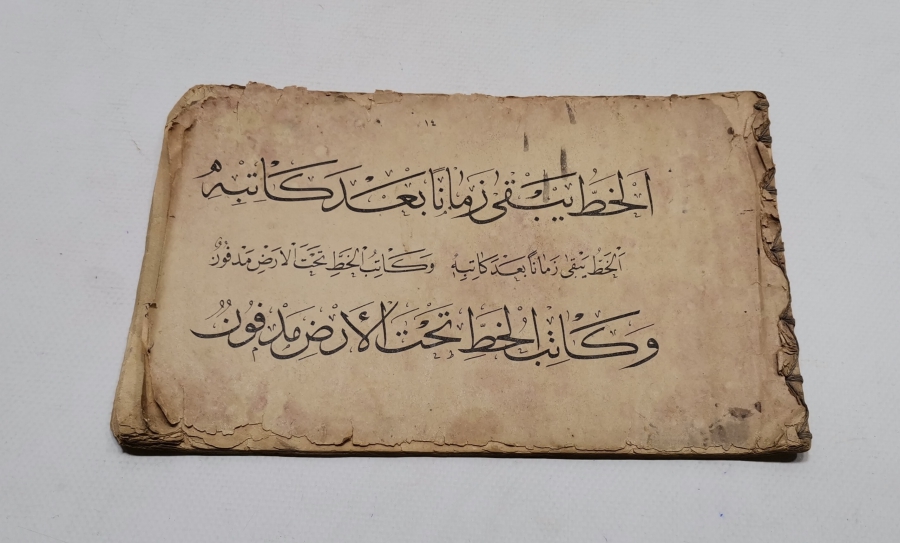 ١٤
اَلْخَطُّ يَبْقَى زَمَانًا بَعْدَ كَاتِبِهِ
اَلْخَطُّ يَبْقَى زَمَانًا بَعْدَ كَاتِبِهِ وَكَاتِبُ الْخَطِّ تَحْتَ الْأَرْضِ مَدْفُونٌ
وَكَاتِبُ الْخَطِّ تَحْتَ الْأَرْضِ مَدْفُونٌ